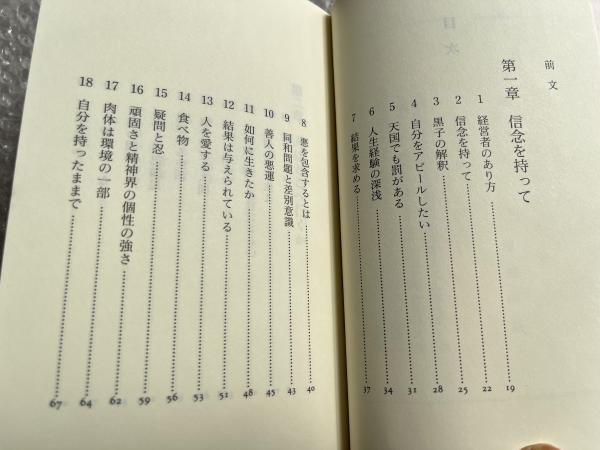 目次
前文
第一章 信念を持って
1 経営者のあり方……19
2 信念を持って……22
3 黒子の解釈……25
4 自分をアピールしたい……28
5 天国でも罰がある……31
6 人生経験の深浅……34
7 結果を求める……37
8 悪を包含するとは……40
9 同和問題と差別意識……43
10 善人の悪運……45
11 如何に生きたか……48
12 結果は与えられている……51
13 人を愛する……53
14 食べ物……56
15 疑問と忍……59
16 頑固さと精神界の個性の強さ……62
17 肉体は環境の一部……64
18 自分を持ったままで……67